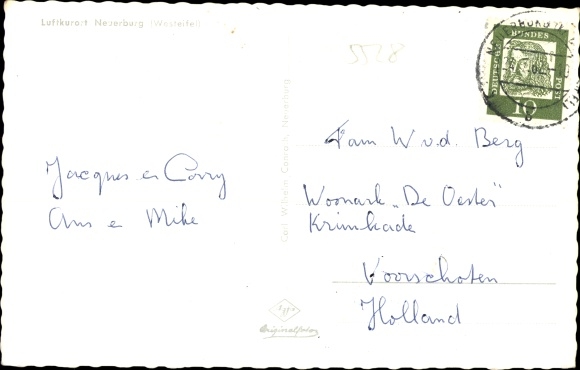 Luftkurort Neuerburg (Westeifel)
5528
DEUTSCHE BUNDESPOST
10
Carl Wilhelm Conrady, Neuerburg
Fam W v.d. Berg
Jacques en Corry
Ans en Mike
Woonark „De Oester"
Krimkade
Voorschoten
Holland
Originalfoto